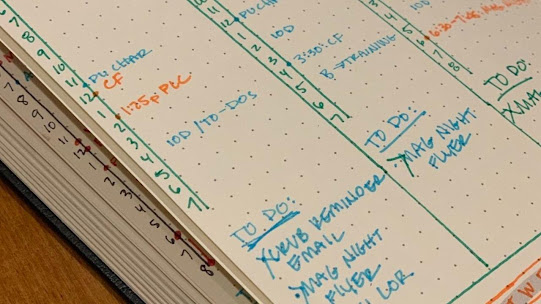 6
7
8
9
10
11
12
1
2
3
4
5
6
7
PU CHAR
CF
1:25p PBC
IOD / TO-DOS
TO DO:
XCRVB REMINDER
EMAIL
MAG NIGHT
FLYER
LOR
10
11
12
1
2
3
4
5
6
7
PU CH
IOD
3:30: CF
B → TRAINING
TO DO:
MAG NIGHT
FLYER
3
4
5
6
7
8
IOD
TO DO:
XMAG
7
8
9
10
11
12
1
2
3
4
5
6
7
8
WE